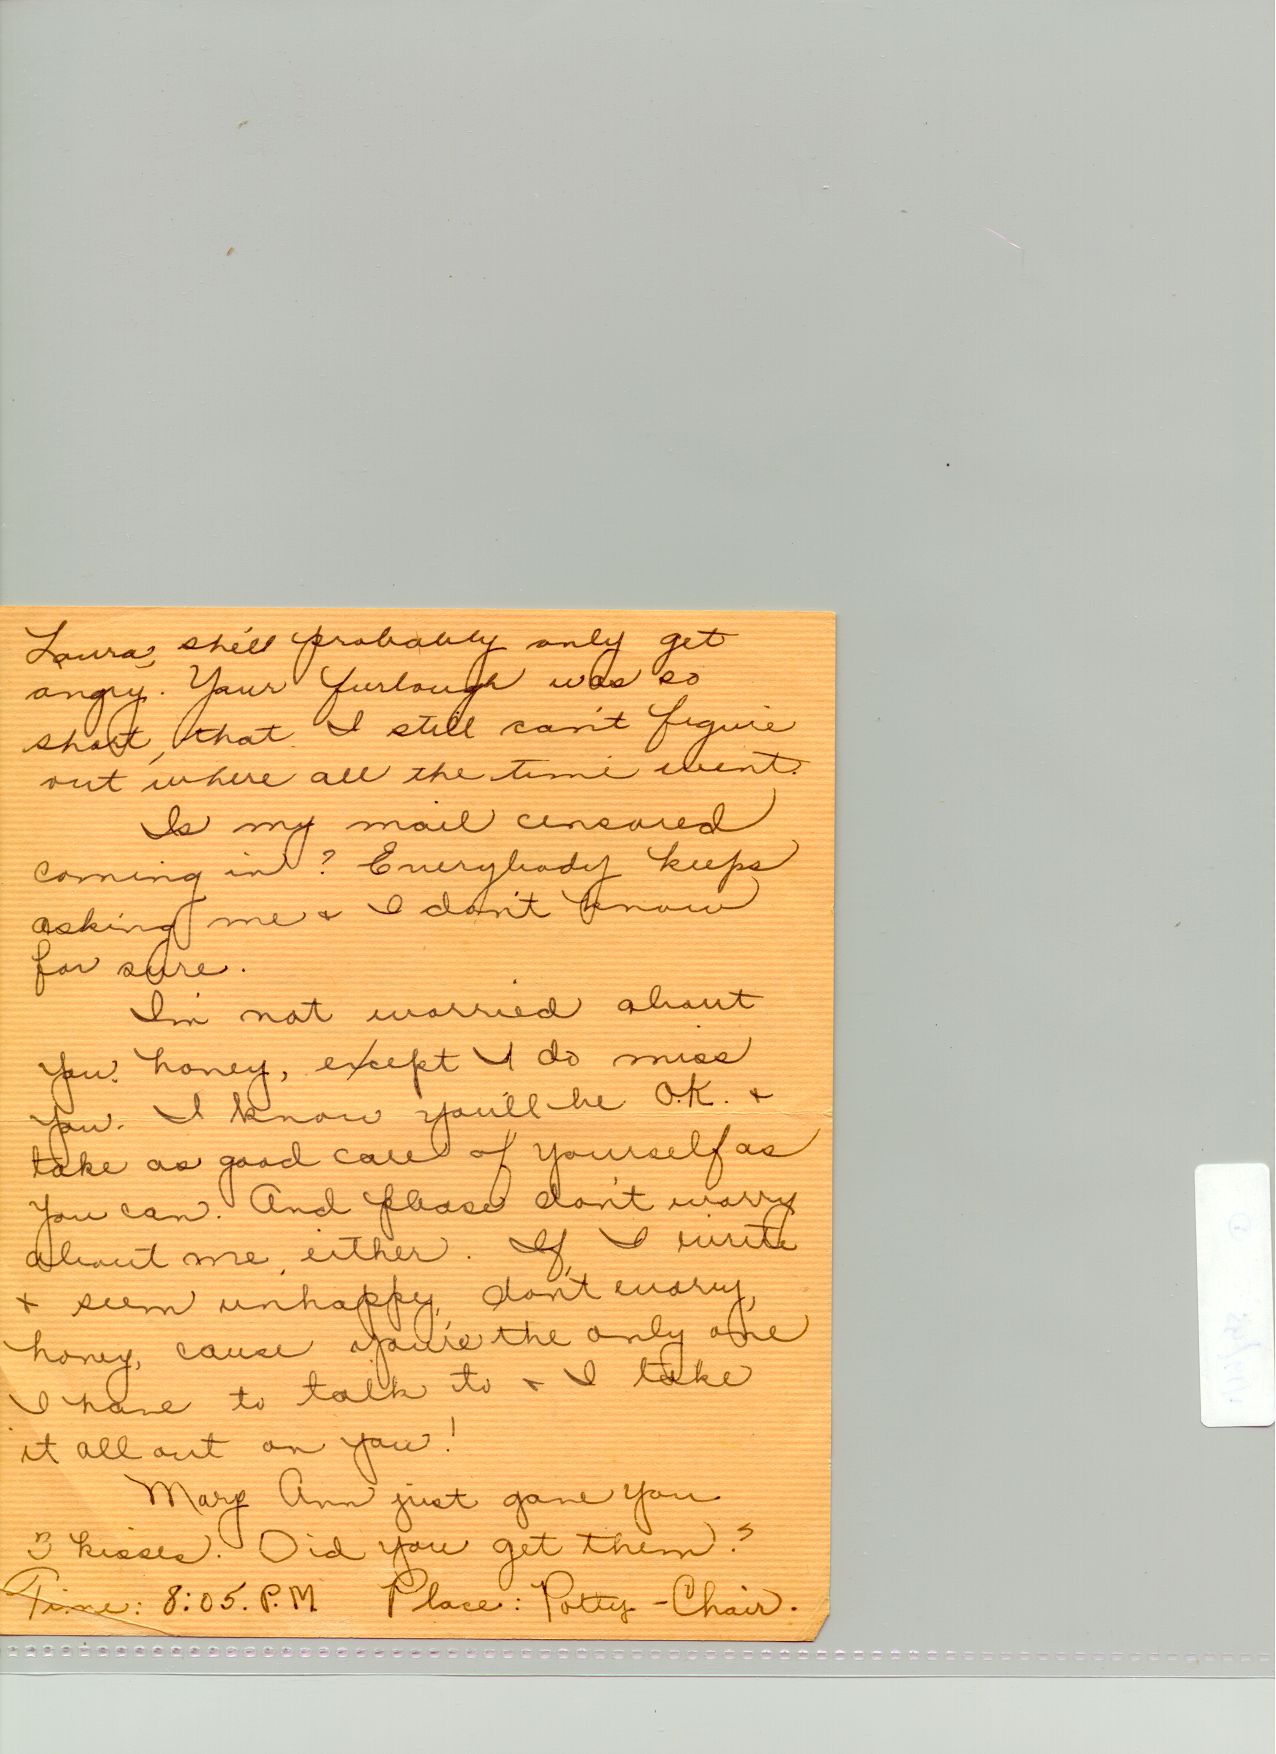 Laura, she'll probably only get
angry. Your furlough was so
short, that I still can't figure
out where all the time went.
Is my mail censored
coming in? Everybody keeps
asking me & I don't know
for sure.
I'm not worried about
you honey, except I do miss
you. I know you'll be O.K. &
take as good care of yourself as
you can. And please don't worry
about me, either. If I write
& seem unhappy, don't worry,
honey, cause you're the only one
I have to talk to & I take
it all out on you!
Mary Ann just gave you
3 kisses. Did you get them?
Time: 8:05. P.M. Place: Potty-Chair.